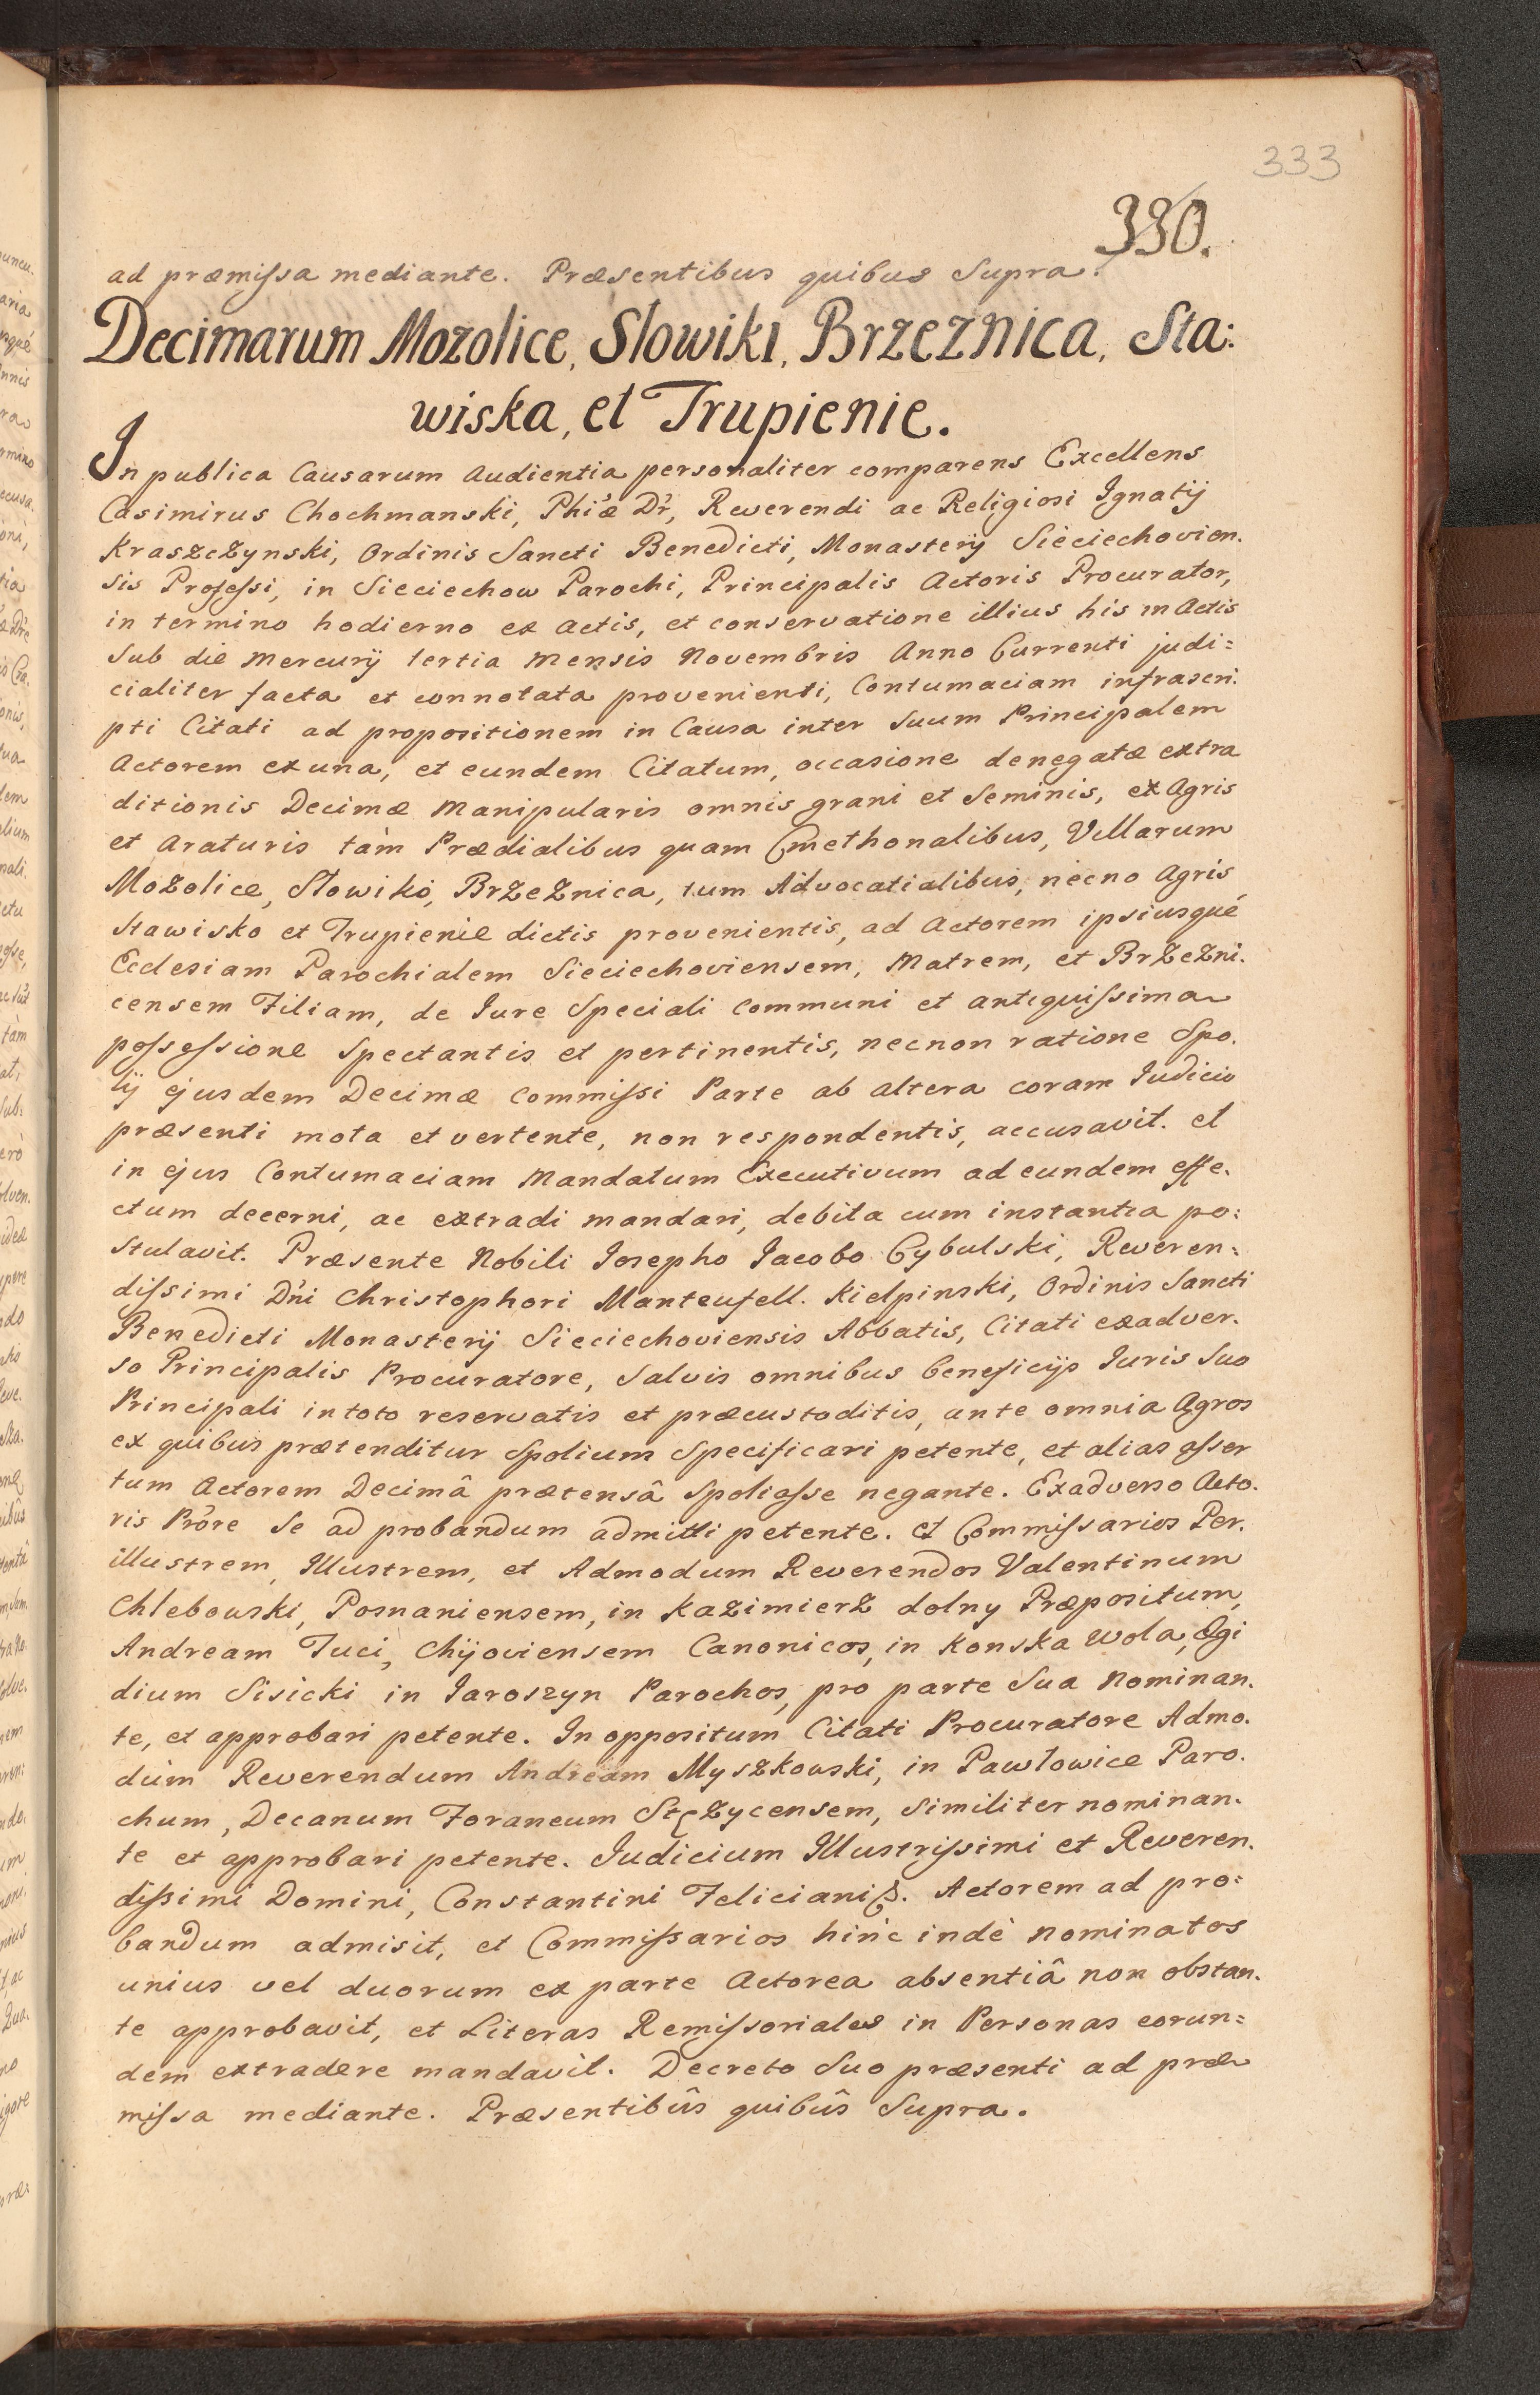 333
330.
ad præmissa mediante. Præsentibus quibus Supra.
Decimarum Mozolice, Słowiki, Brzeznica, Sta:
wiska, et Trupienie.
In publica Causarum Audientia personaliter comparens Excellens
Casimirus Chochmanski, Phi'æ Dr, Reverendi ac Religiosi Ignatij
Kraszczynski, Ordinis Sancti Benedicti, Monasterij Sieciechovien.
sis Professi, in Sieciechow Parochi, Principalis Actoris Procurator,
in termino hodierno ex Actis, et conservatione illius his in Actis
Sub die Mercurij tertia Mensis Novembris Anno Currenti judi=
cialiter facta et connotata provenienti, Contumaciam infrascri.
pti Citati ad propositionem in Causa inter Suum Principalem
Actorem ex una, et eundem Citatum, occasione denegatæ extra
ditionis Decimæ Manipularis omnis grani et Seminis, ex Agris
et Araturis tàm Prædialibus quam Cmethonalibus, Villarum
Mozolice, Słowiki, Brzeznica, tum Advocatialibus, necno Agris
Stawisko et Trupienie dictis provenientis, ad Actorem ipsiusqué
Ecclesiam Parochialem Sieciechoviensem, Matrem, et Brzezni.
censem Filiam, de Iure Speciali communi et antiquissima
possessione Spectantis et pertinentis, necnon ratione Spo.
lij ejusdem Decimæ commissi Parte ab altera coram Iudicio
præsenti mota et vertente, non respondentis, accusavit. et
in ejus Contumaciam Mandatum Executivum ad eundem effe.
ctum decerni, ac extradi mandari, debita cum instantia po:
stulavit. Præsente Nobili Iosepho Iacobo Cybulski, Reveren=
dissimi D'ni Christophori Manteufell. Kielpinski, Ordinis Sancti
Benedicti Monasterij Sieciechoviensis Abbatis, Citati exadver.
so Principalis Procuratore, Salvis omnibus beneficijs Iuris Suo
Principali in toto reservatis et præcustoditis, ante omnia Agros
ex quibus prætenditur Spolium Specificari petente, et alias asser
tum Actorem Decimâ prætensâ Spoliasse negante. Exadverso Acto.
ris Pro're Se ad probandum admitti petente. et Commissarios Per.
illustrem, Illustrem, et Admodum Reverendos Valentinum
Chlebowski, Posnaniensem, in Kazimierz dolny Præpositum,
Andream Tuci, Chijoviensem Canonicos, in Konska Wola, Ægi
dium Sisicki in Iaroszyn Parochos, pro parte Sua Nominan.
te, et approbari petente. In oppositum Citati Procuratore Admo.
dùm Reverendum Andream Myszkowski, in Pawłowice Paro.
chum, Decanum Foraneum Stęzycensem, Similiter nominan.
te et approbari petente. Iudicium Illustrissimi et Reveren.
dissimi Domini, Constantini Feliciani. Actorem ad pro=
bandum admisit, et Commissarios hinc indè nominatos
unius vel duorum ex parte Actorea absentiâ non obstan.
te approbavit, et Literas Remissoriales in Personas eorun=
dem extradere mandavit. Decreto Suo præsenti ad præ
missa mediante. Præsentibûs quibûs Supra.